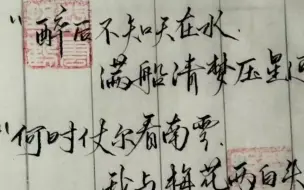 "醉后不知天在水.
满船清梦压星
"何时仗尔看南雪.
我与梅花两白头